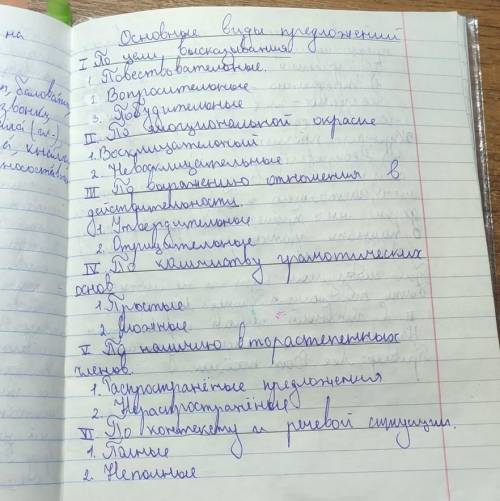 на
Основные виды предложений
I По цели высказывания
1. Повествовательные.
2. Вопросительные
3. Побудительные
II. По эмоциональной окраске
1. Восклицательный
2. Невосклицательные
III По выражению отношения в
действительности.
1. Утвердительные
2. Отрицательные
IV. По количеству грамотических
основ
1. Простые
2. сложные
V По наличию второстепенных
членов.
1. Распространёные предложения
2. Нераспространёные
VI По контексту и речевой ситуации.
1. Полные
2. Неполные